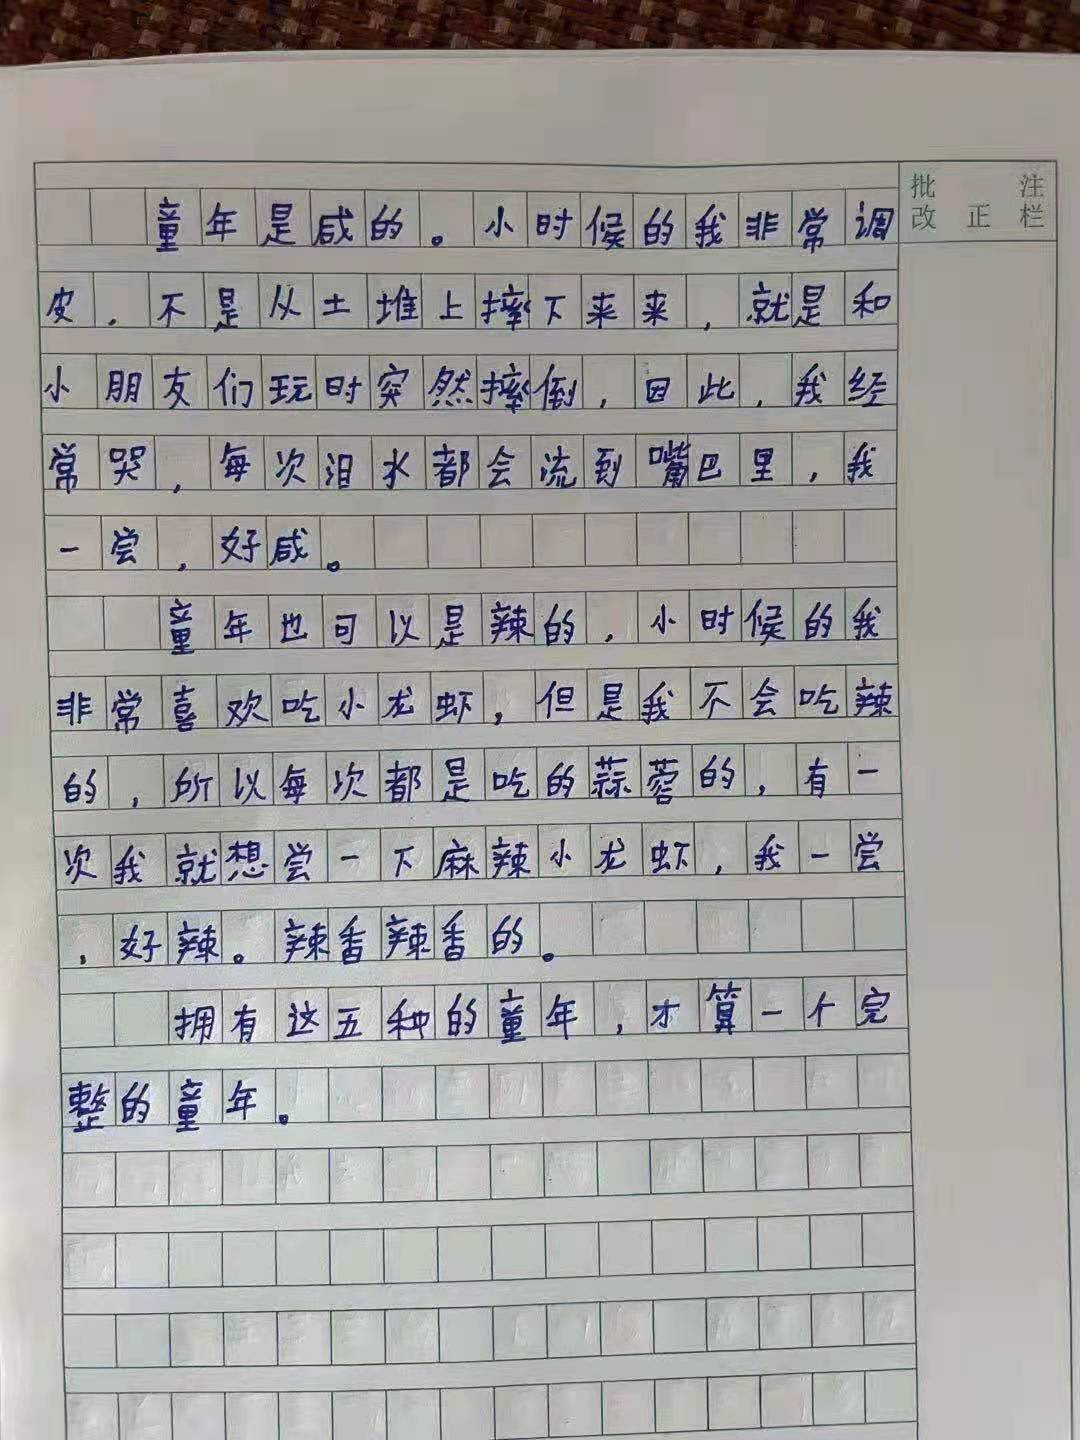 批 注
改 正 栏
童年是咸的。小时候的我非常调
皮,不是从土堆上摔下来来,就是和
小朋友们玩时突然摔倒,因此,我经
常哭,每次泪水都会流到嘴巴里,我
一尝,好咸。
童年也可以是辣的,小时候的我
非常喜欢吃小龙虾,但是我不会吃辣
的,所以每次都是吃的蒜蓉的,有一
次我就想尝一下麻辣小龙虾,我一尝
,好辣。辣香辣香的。
拥有这五种的童年,才算一个完
整的童年。